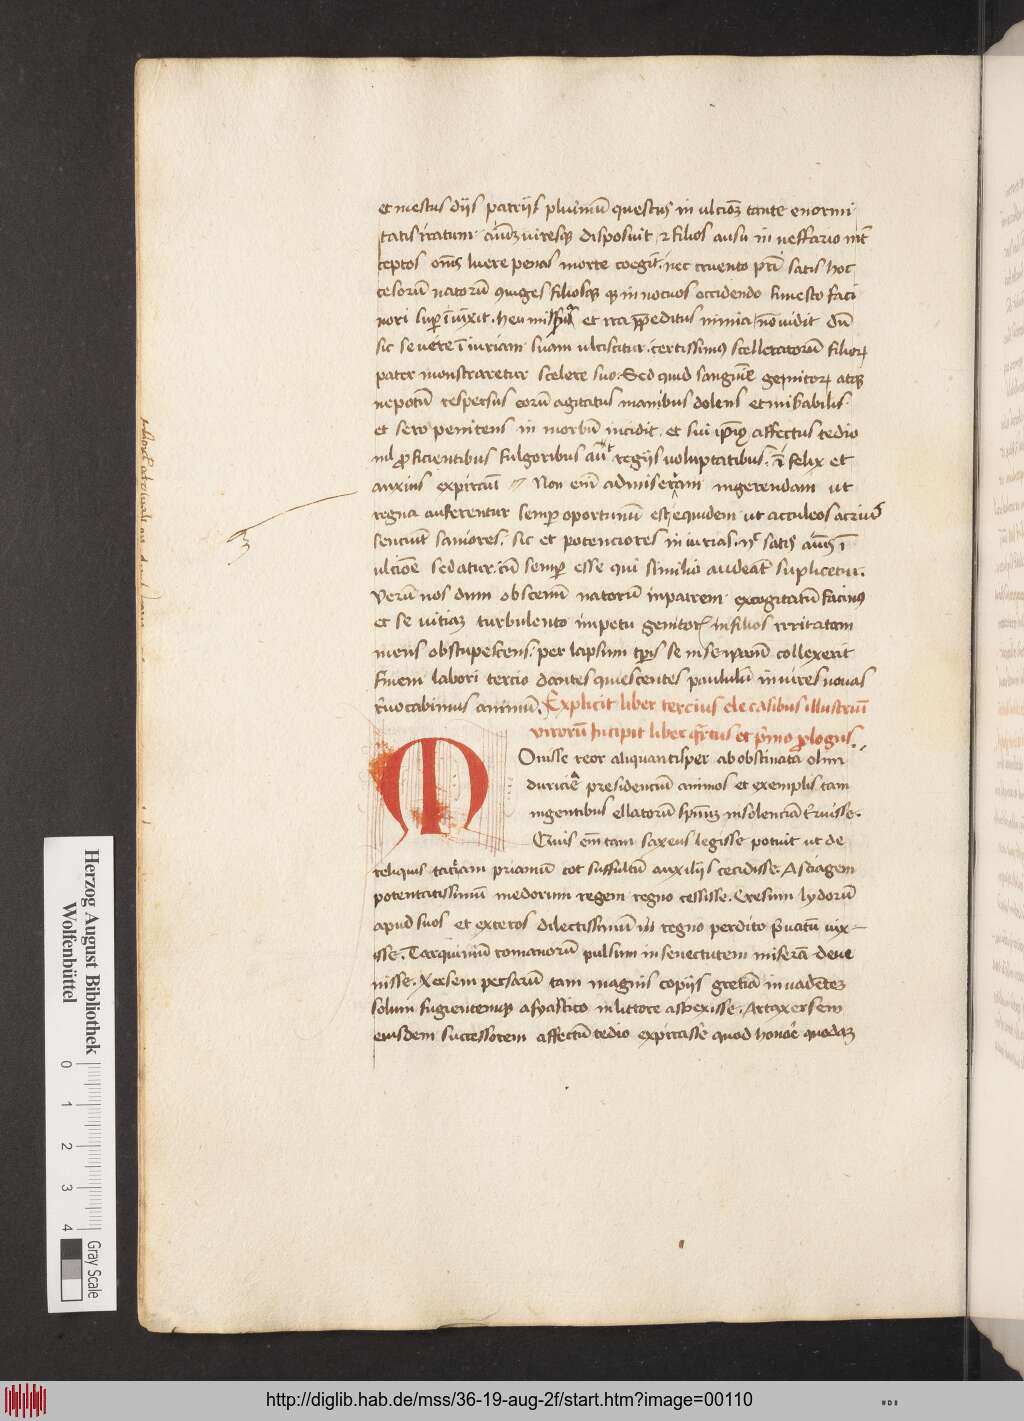 et mestus dijs patrijs plurimū questus in ulcionē tante enormi
tatis iratum animū viresque disposuit et filios ausu in neffario int
ceptos omnes luere penas morte coegit. nec cruento patri satis hoc
cesorū natorū coniuges filiosque in nocuos occidendo funesto faci
nori super iunxit. heu et ira nimia non vidit dū
sic severe iniuriam suam ulciscitur. certissimus scelleratorū filiorum
pater monstraretur scelere suo. Sed quid sanguine genitorum atque
nepotū respersus eorū agitatus manibus dolens et mirabilis
et sero penitens in morbū incidit et sui affectus tedio
nil proficientibus fulgoribus aut regijs voluptatibus. infelix et
anxius expiravit // Non enim admiserā iam ingerendam ut
regna auferentur semper oportunū est equidem ut acculeos acrius
senciunt saniores. sic et potenciores in iurias. nec satis
ulcione sedatur. cū semper esse qui similia audeat suplicetur.
Verū nos dum obscenū natorū in patrem excogitatū facinus
et se vitiam turbulento impetu genitoris in filios irritatam
mens obstupescens. per lapsum temporis se in se ipsam collexerit
finem labori tercio dantes quiescentes paululū in vires novas
revocabimus animū. Explicit liber tercius de casibus illustriū
virorū Incipit liber quartus et primo prologus.
M Ovisse reor aliquantisper ab obstinata olim
duricie presidenciū animos et exemplis tam
ingentibus ellatorū spirituum insolenciā truisse.
Quis enim tam saxeus legisse potuit ut de
reliquis taceam priamū tot suffultū auxilijs cecidisse. Astiagem
potentatissimū medorum regem regno cessisse. Cresum lydorū
apud suos et exteros dilectissimū in regno perdito privatū vix-
isse. Tarquiniū romanorū pulsum in senectutem miserā deve
nisse. Xersem persarū tam magnis copijs greciā invadentem
solum fugientemque a fyastico in littore aspexisse. Artaxersem
eiusdem successorem affectū tedio expirasse quod honore quodam
Herzog August Bibliothek
Wolfenbüttel
0 1 2 3 4
Gray Scale
http://diglib.hab.de/mss/36-19-aug-2f/start.htm?image=00110